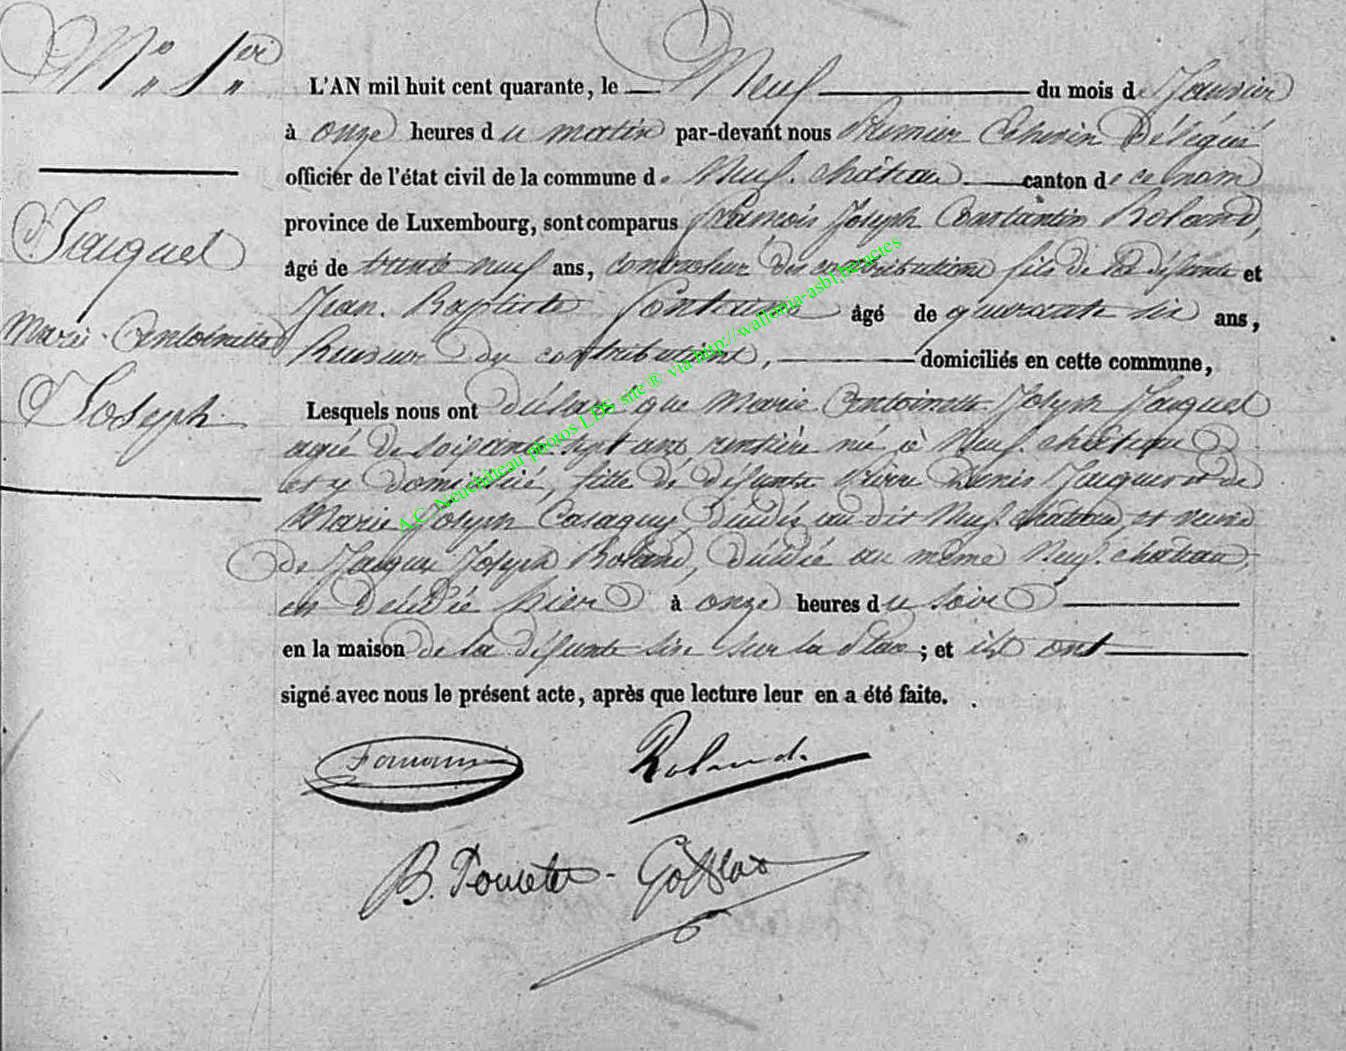 N° 1er
Jacquet
Marie-Antoinette
Joseph
L'AN mil huit cent quarante, le Neuf du mois de Janvier
à onze heures du matin par-devant nous Premier Echevin Délégué
officier de l'état civil de la commune de Neuf.château canton de ce nom
province de Luxembourg, sont comparus François Joseph Constantin Roland,
âgé de trente neuf ans, controleur des contributions fils de la défunte et
Jean.Baptiste âgé de quarante six ans,
Receveur des contributions, domiciliés en cette commune,
Lesquels nous ont déclaré que Marie Antoinette Joseph Jacquet
agée de soixante sept ans, rentière née à Neuf.château
et y domiciliée, fille de défunts Pierre Denis Jacquet et de
Marie Joseph décédés au dit Neuf.château, et veuve
de Jacques Joseph Roland, décédé au même Neuf.château,
est décédée hier à onze heures du soir
en la maison de la défunte sise sur la Place ; et ils ont
signé avec nous le présent acte, après que lecture leur en a été faite.
Roland
B. Poncelet
A.C. Neufchâteau photos LDS site ® via http://wallonia-asbl.be/actes